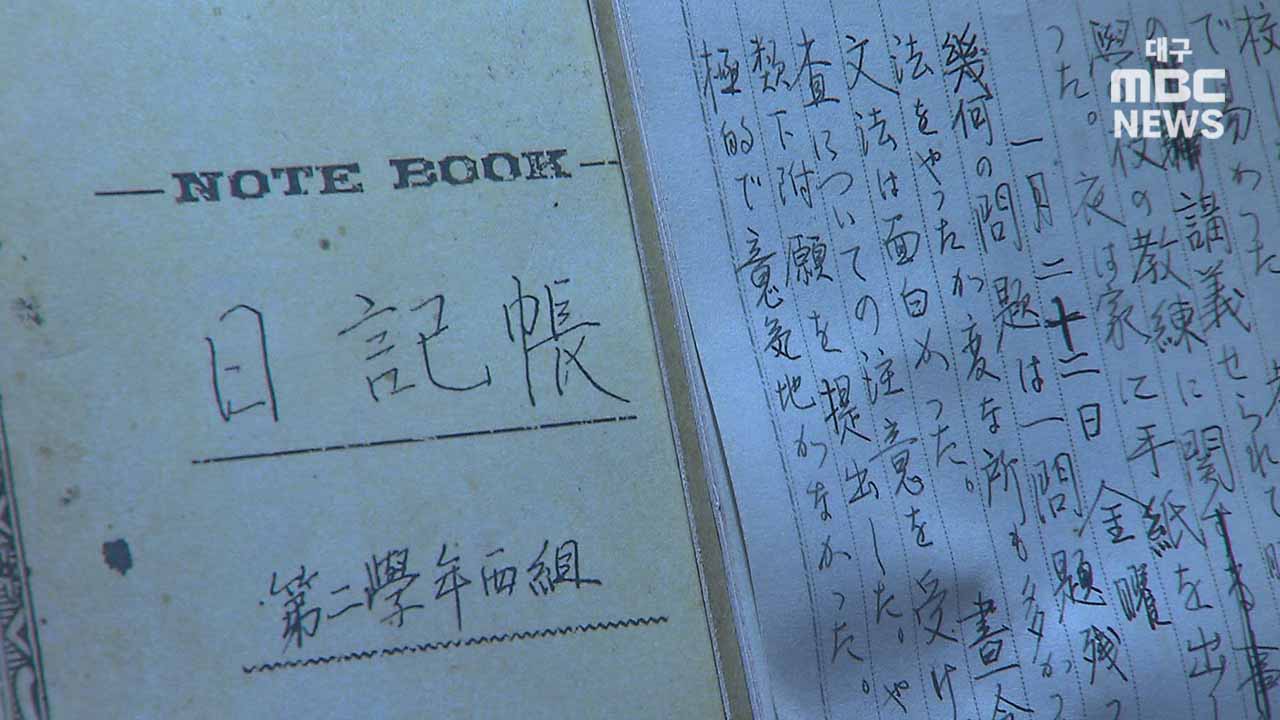 대구
MBC
NEWS
NOTE BOOK
日記帳
第二學年西組
講義せられて
の教練に関する事
つた。夜は家に手紙を出し
一月二十二日 金曜
幾何の問題は一問題残つ
法をやつたが変な所も多かつ
文法は面白かつた。晝食
査についての注意を受け
類下附願を提出した。や
極的で意気地がなかつた。